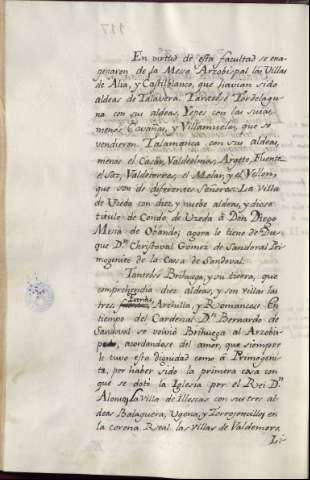 117
En virtud de esta facultad se ena-
genaron de la Mesa Arzobispal las Villas
de Alia, y Castilblanco, que havian sido
aldeas de Talavera. Tanteose Tordelagu-
na con sus aldeas, Yepes con las suias
menos Cavañas, y Villamuelas, que se
vendieron. Talamanca con sus aldeas,
menos el Casar, Valdeolmos, Argete, Fuente
el Saz, Valdetorres, el Molar, y el Vellon,
que son de diferentes Señores. La villa
de Uzeda con diez, y nuebe aldeas, y diose
titulo de Conde de Uzeda á Don Diego
Mesia de Obando; agora le tiene de Du-
que Dn. Christoval Gomez de Sandoval Pri-
mogenito de la Casa de Sandoval.
Tanteose Brihuega, y su tierra, que
comprehendia diez aldeas, y son villas las
tres, Archilla, y Romancos. En
tiempo del Cardenal Dn. Bernardo de
Sandoval se volvió Brihuega al Arzobis-
pado, acordandose del amor, que siempre
le tuvo esta dignidad como á Primogéni-
ta, por haber sido la primera cosa con
que se dotó la Iglesia por el Rei Dn.
Alonso. La Villa de Illescas con sus tres al-
deas Balaguera, Ugena, y Torrejoncillo, en
la corona Real. las Villas de Valdemoro